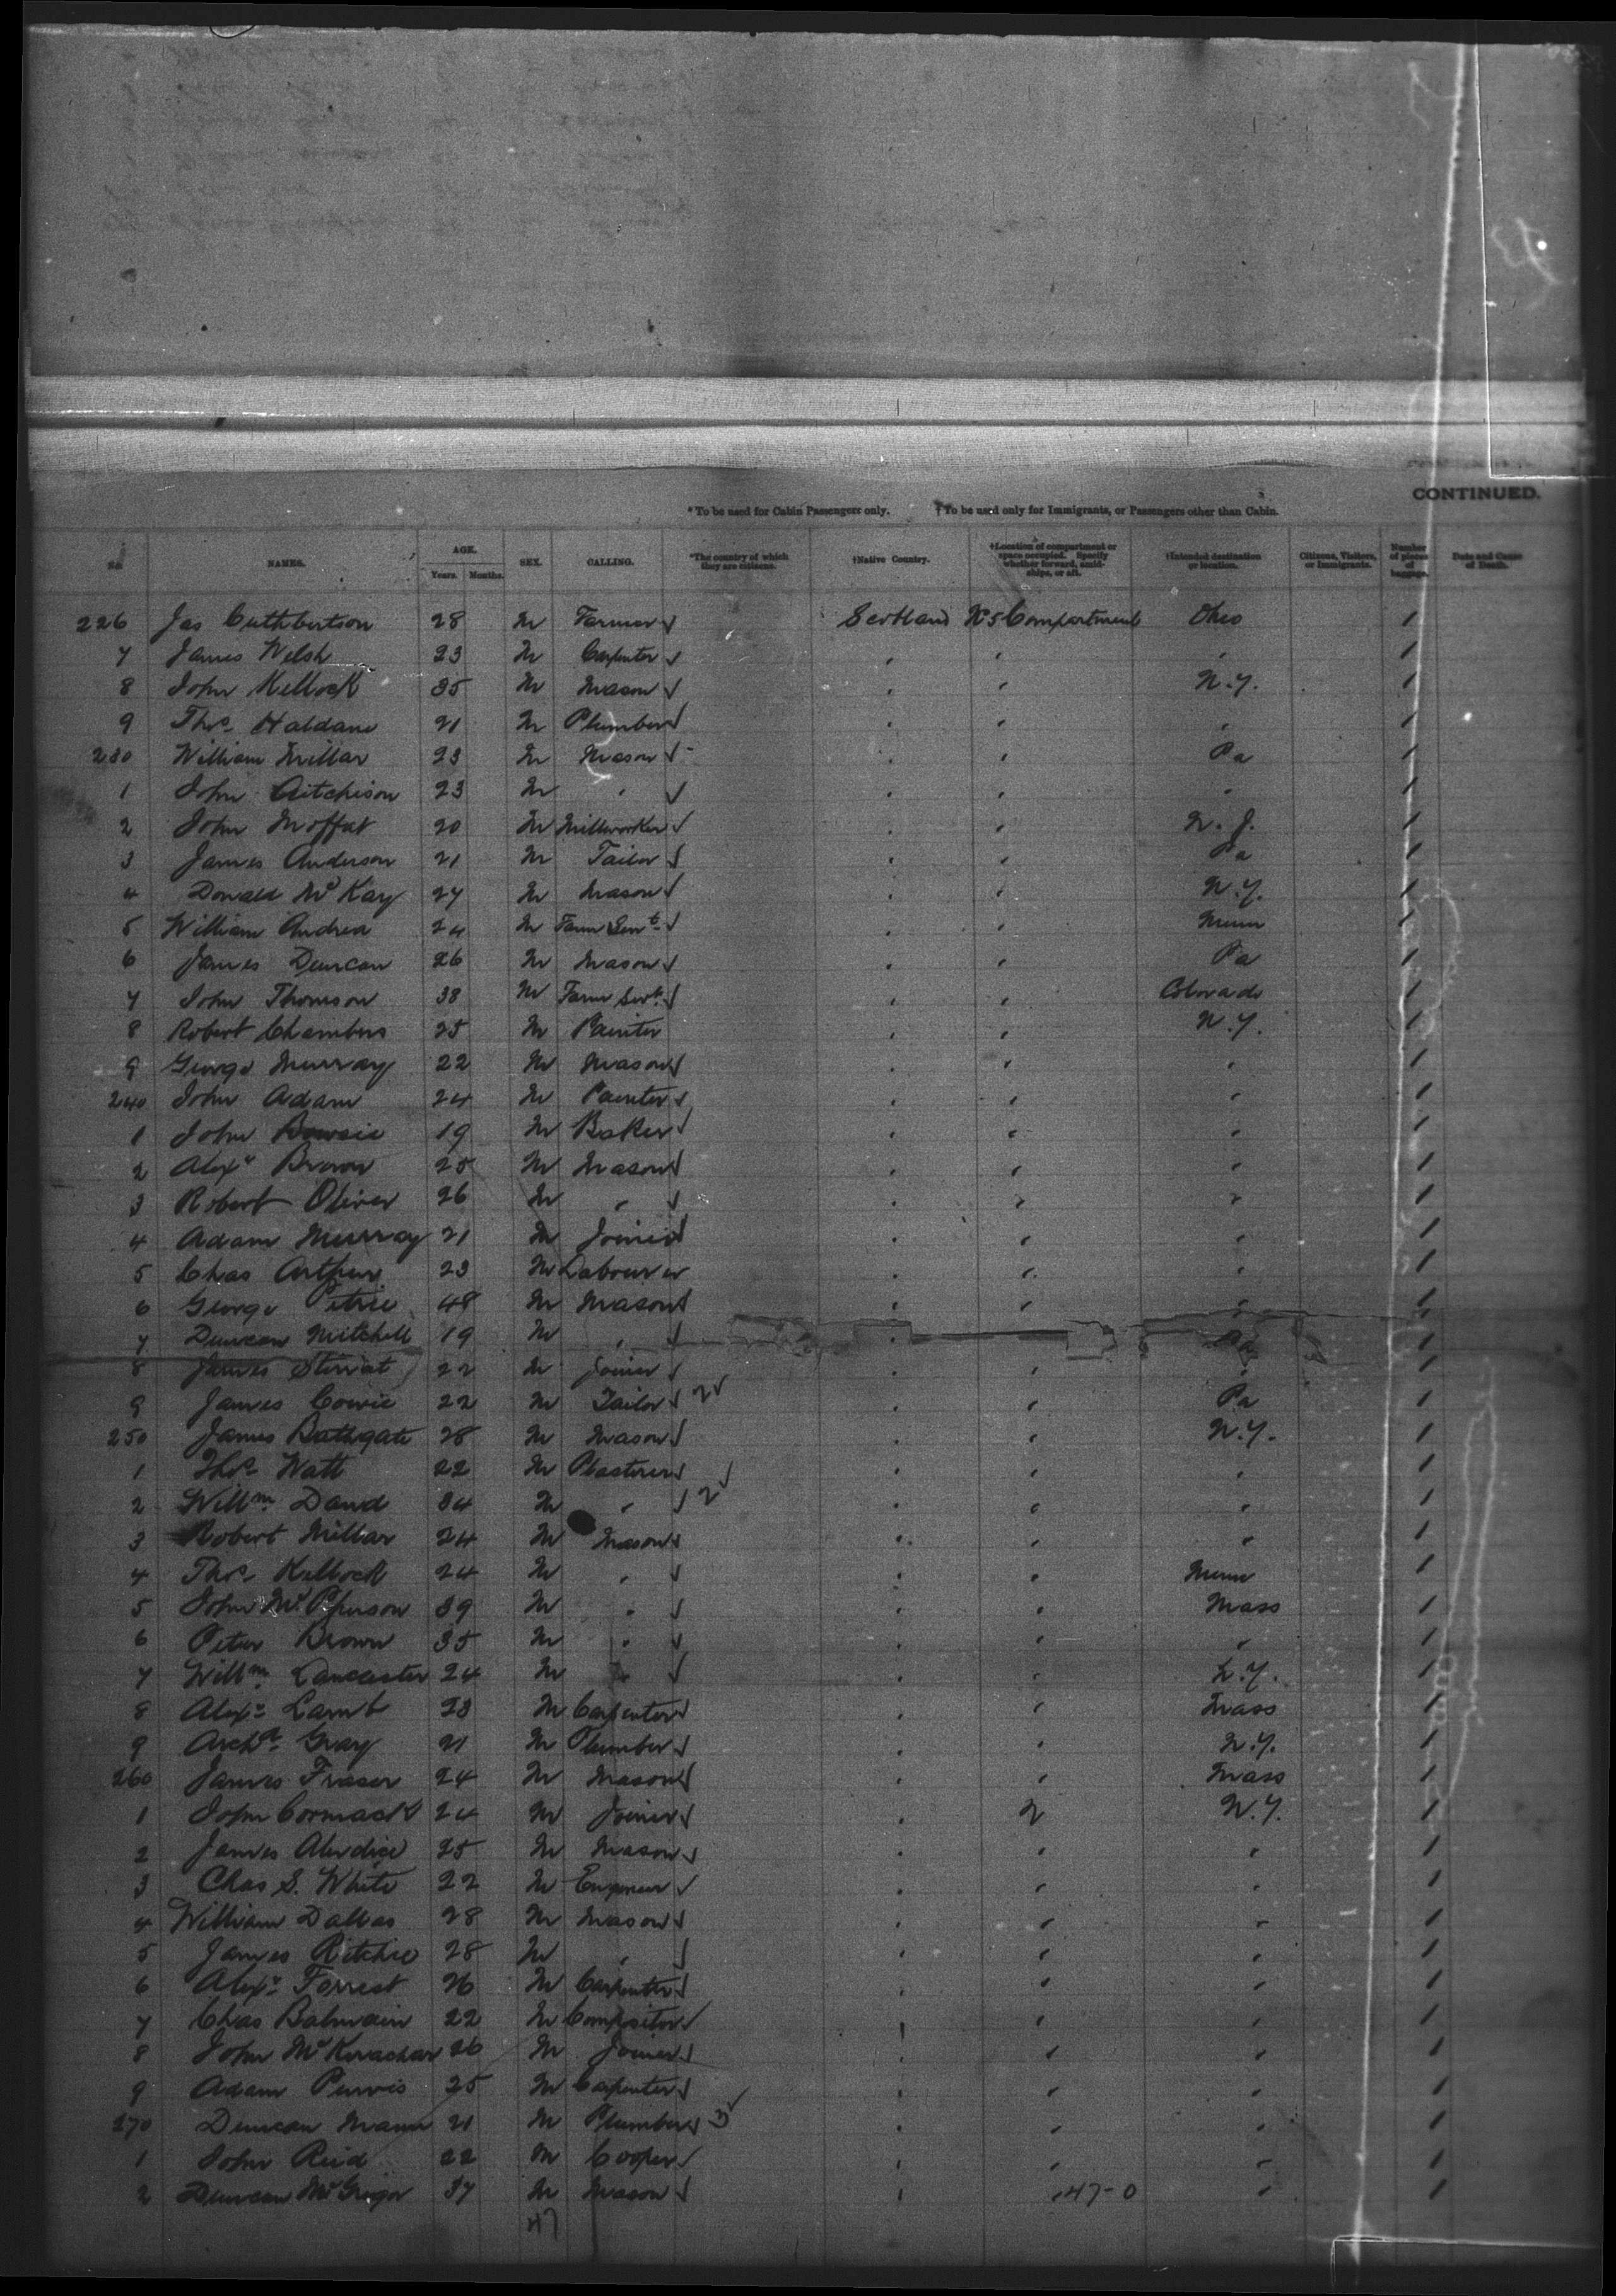 CONTINUED.
*To be used for Cabin Passengers only. †To be used only for Immigrants, or Passengers other than Cabin.
No. NAMES. AGE. Years. Months. SEX. CALLING. *The country of which they are citizens. †Native Country. †Location of compartment or space occupied. Specify whether forward, amidships, or aft. †Intended destination or location. Citizens, Visitors, or Immigrants. Number of pieces of baggage. Date and Cause of Death.
226 Jas Cuthbertson 28 M Farmer Scotland No 5 Compartment Ohio 1
7 James Welsh 23 M Carpenter " " " 1
8 John Kellock 35 M Mason " " N.Y. 1
9 Thos. Haldane 21 M Plumber " " " 1
230 William Millar 23 M Mason " " Pa 1
1 John Aitchison 23 M " " " " 1
2 John Moffat 20 M Millworker " " N.J. 1
3 James Anderson 21 M Tailor " " Pa 1
4 Donald McKay 27 M Mason " " N.Y. 1
5 William Andrea 24 M Farm Servt. " " Minn 1
6 James Duncan 26 M Mason " " Pa 1
7 John Thomson 38 M Farm Servt. " " Colorado 1
8 Robert Chambers 25 M Painter " " N.Y. 1
9 George Murray 22 M Mason " " " 1
240 John Adam 24 M Painter " " " 1
1 John Bowsie 19 M Baker " " " 1
2 Alexr Brown 25 M Mason " " " 1
3 Robert Oliver 26 M " " " " 1
4 Adam Murray 21 M Joiner " " " 1
5 Chas Arthur 23 M Labourer " " " 1
6 George Petrie 48 M Mason " " " 1
7 Duncan Mitchell 19 M " " Pa 1
8 James Stirrat 22 M Joiner " " " 1
9 James Cowie 22 M Tailor 2 " " Pa 1
250 James Bathgate 28 M Mason " " N.Y. 1
1 Thos. Watt 22 M Plasterer " " " 1
2 Willm. David 34 M " 2 " " " 1
3 Robert Millar 24 M Mason " " " 1
4 Thos. Kellock 24 M " " " Minn 1
5 John McPherson 39 M " " " Mass 1
6 Peter Brown 35 M " " " " 1
7 Willm. Lancaster 24 M " " " N.Y. 1
8 Alexr. Lamb 23 M Carpenter " " Mass 1
9 Archd. Gray 21 M Plumber " " N.Y. 1
260 James Fraser 24 M Mason " " Mass 1
1 John Cormack 24 M Joiner " " N.Y. 1
2 James Alerdice 25 M Mason " " " 1
3 Chas S. White 22 M Engineer " " " 1
4 William Dallas 28 M Mason " " " 1
5 James Ritchie 28 M " " " " 1
6 Alexr. Forrest 26 M Carpenter " " " 1
7 Chas Balmain 22 M Compositor " " " 1
8 John McKerachar 26 M Joiner " " " 1
9 Adam Purvis 25 M Carpenter " " " 1
270 Duncan Mann 21 M Plumber 3 " " " 1
1 John Reid 22 M Cooper " " " 1
2 Duncan McGregor 37 M Mason " " 47-0 " 1
47